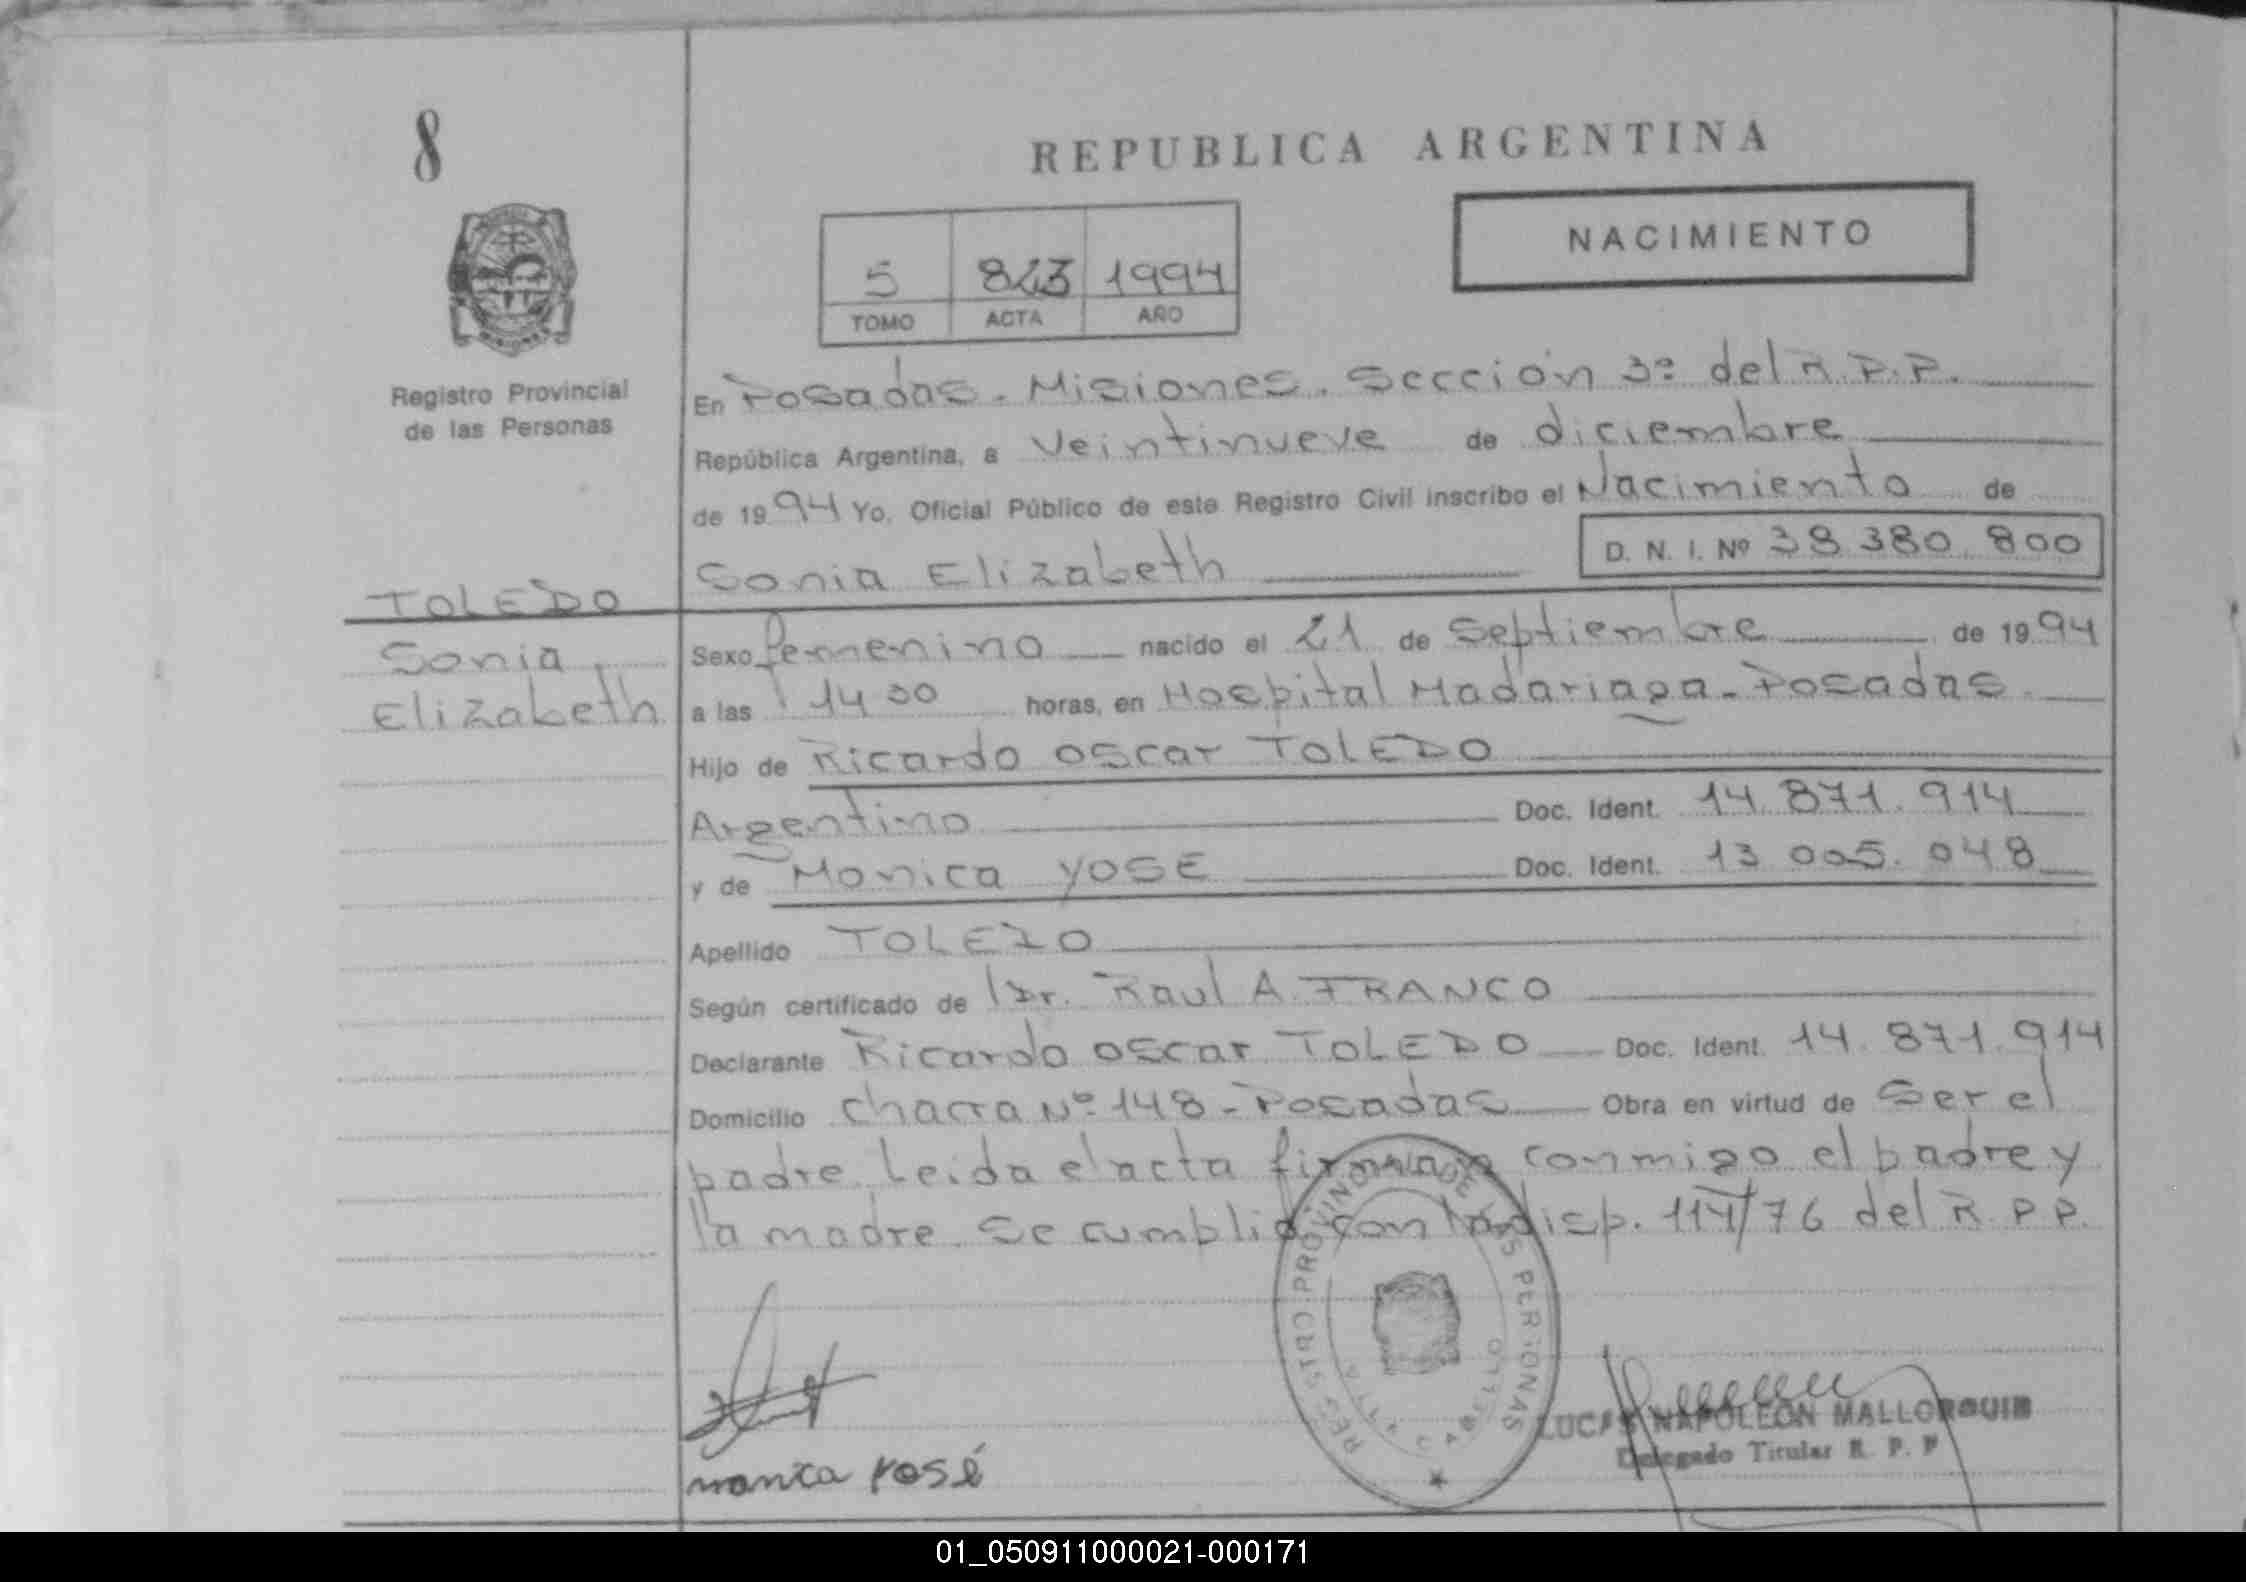 8
REPUBLICA ARGENTINA
NACIMIENTO
5 823 1994
TOMO ACTA AÑO
Registro Provincial
de las Personas
En Posadas. Misiones. Sección 3ª del R.P.P.
República Argentina, a veintinueve de diciembre
de 1994 Yo, Oficial Público de este Registro Civil inscribo el Nacimiento de
Sonia Elizabeth D. N. I. Nº 38.380.800
TOLEDO
Sonia
Elizabeth
Sexo femenino nacido el 21 de Septiembre de 1994
a las 14 00 horas, en Hospital Madariaga - Posadas.
Hijo de Ricardo Oscar TOLEDO
Argentino Doc. Ident. 14.871.914
y de Monica YOSE Doc. Ident. 13.005.048
Apellido TOLEDO
Según certificado de Dr. Raul A. FRANCO
Declarante Ricardo Oscar TOLEDO Doc. Ident. 14.871.914
Domicilio Chacra Nº 148 - Posadas Obra en virtud de Ser el
padre. Leida el acta firman conmigo el padre y
la madre. Se cumplió con la disp. 114/76 del R.P.P.
REGISTRO PROVINCIAL DE LAS PERSONAS
VILLA CABELLO
monica yosé
LUCAS NAPOLEON MALLORQUIN
Delegado Titular R. P. P
01_050911000021-000171